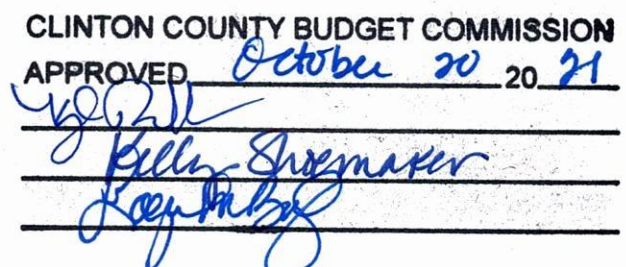 CLINTON COUNTY BUDGET COMMISSION
APPROVED October 20 20 21
Kelly Shoemaker